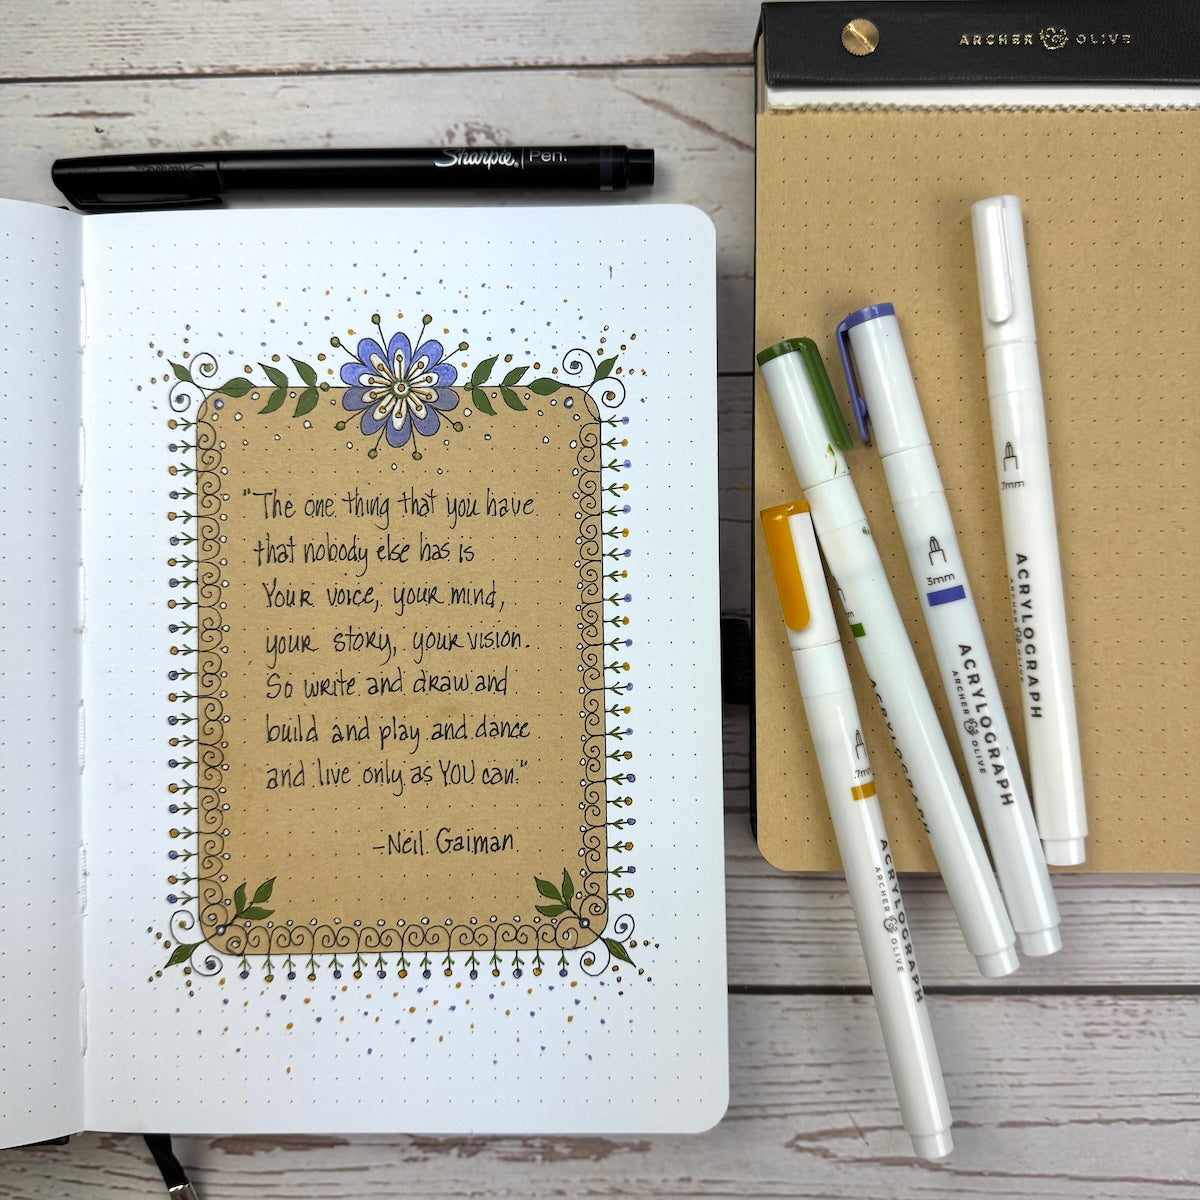 ARCHER & OLIVE
Sharpie. Pen.
"The one thing that you have
that nobody else has is
Your voice, your mind,
your story, your vision.
So write and draw and
build and play and dance
and live only as YOU can."
-Neil Gaiman
.7mm
ACRYLOGRAPH
ARCHER & OLIVE
3mm
ACRYLOGRAPH
ARCHER & OLIVE
ACRYLOGRAPH
.7mm
ACRYLOGRAPH
ARCHER & OLIVE